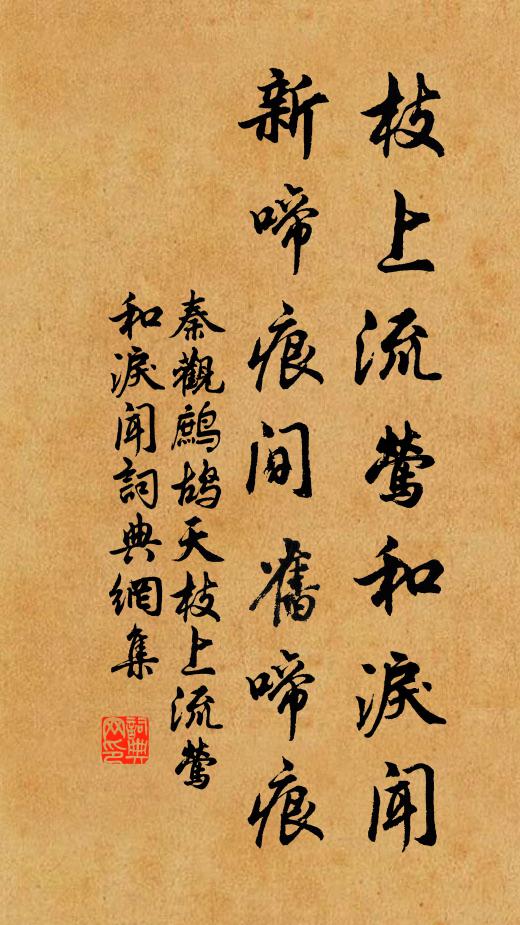 枝上流鶯和淚聞
新啼痕間舊啼痕
秦觀鷓鴣天枝上流鶯
和淚聞詞典網集
詞典
网印